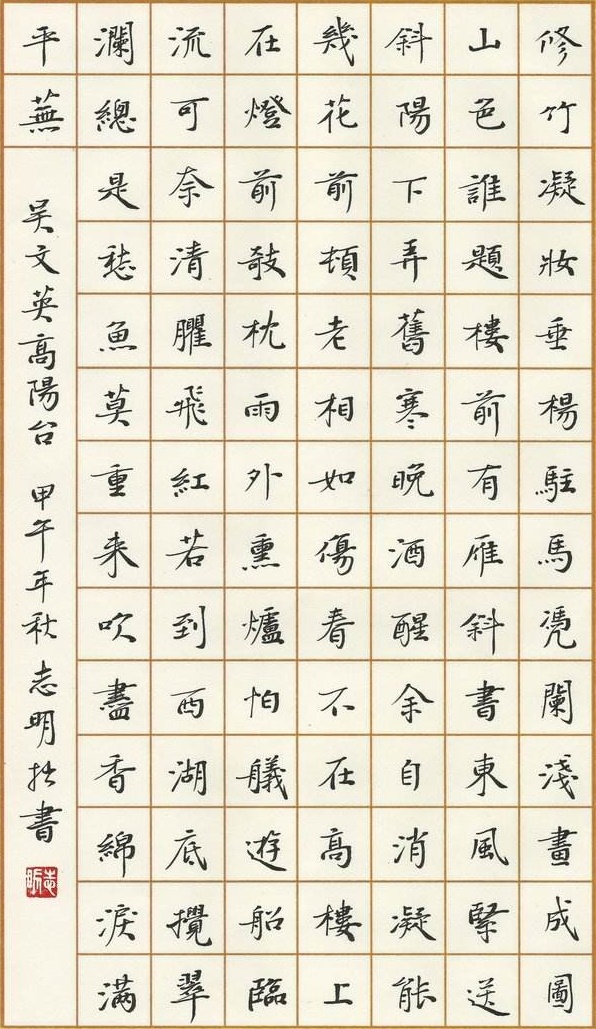 修竹凝妝垂楊駐馬凴闌淺畫成圖
山色誰題樓前有雁斜書東風緊送
斜陽下弄舊寒晚酒醒余自消凝能
幾花前頓老相如傷春不在高樓上
在燈前攲枕雨外熏爐怕艤遊船臨
流可奈清臞飛紅若到西湖底攪翠
瀾總是愁魚莫重來吹盡香綿淚滿
平蕪
吴文英高陽台 甲午年秋志明拙書
志明